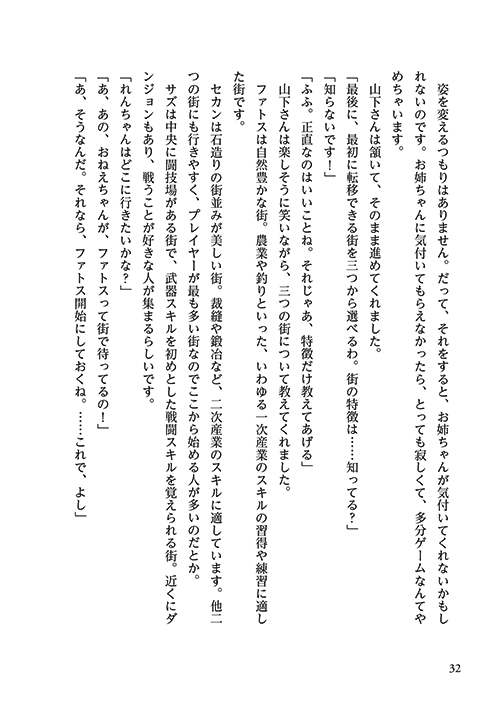 姿を変えるつもりはありません。だって、それをすると、お姉ちゃんが気付いてくれないかもし
れないのです。お姉ちゃんに気付いてもらえなかったら、とっても寂しくて、多分ゲームなんてや
めちゃいます。
　山下さんは頷いて、そのまま進めてくれました。
「最後に、最初に転移できる街を三つから選べるわ。街の特徴は……知ってる？」
「知らないです！」
「ふふ。正直なのはいいことね。それじゃあ、特徴だけ教えてあげる」
　山下さんは楽しそうに笑いながら、三つの街について教えてくれました。
　ファトスは自然豊かな街。農業や釣りといった、いわゆる一次産業のスキルの習得や練習に適し
た街です。
　セカンは石造りの街並みが美しい街。裁縫や鍛冶など、二次産業のスキルに適しています。他二
つの街にも行きやすく、プレイヤーが最も多い街なのでここから始める人が多いのだとか。
　サズは中央に闘技場がある街で、武器スキルを初めとした戦闘スキルを覚えられる街。近くにダ
ンジョンもあり、戦うことが好きな人が集まるらしいです。
「れんちゃんはどこに行きたいかな？」
「あ、あの、おねえちゃんが、ファトスって街で待ってるの！」
「あ、そうなんだ。それなら、ファトス開始にしておくね。……これで、よし」
32